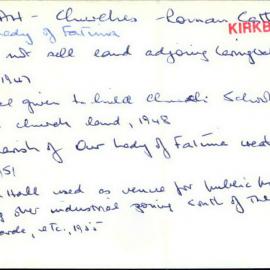 AH - Churches - Roman Cath
KIRKB
Lady of Fatima
not sell land adjoining
1947
given to build Church School
church land, 1948
Parish of Our Lady of Fatima
51
Hall used as venue for public
over industrial zoning South of The
arde, etc., 1955